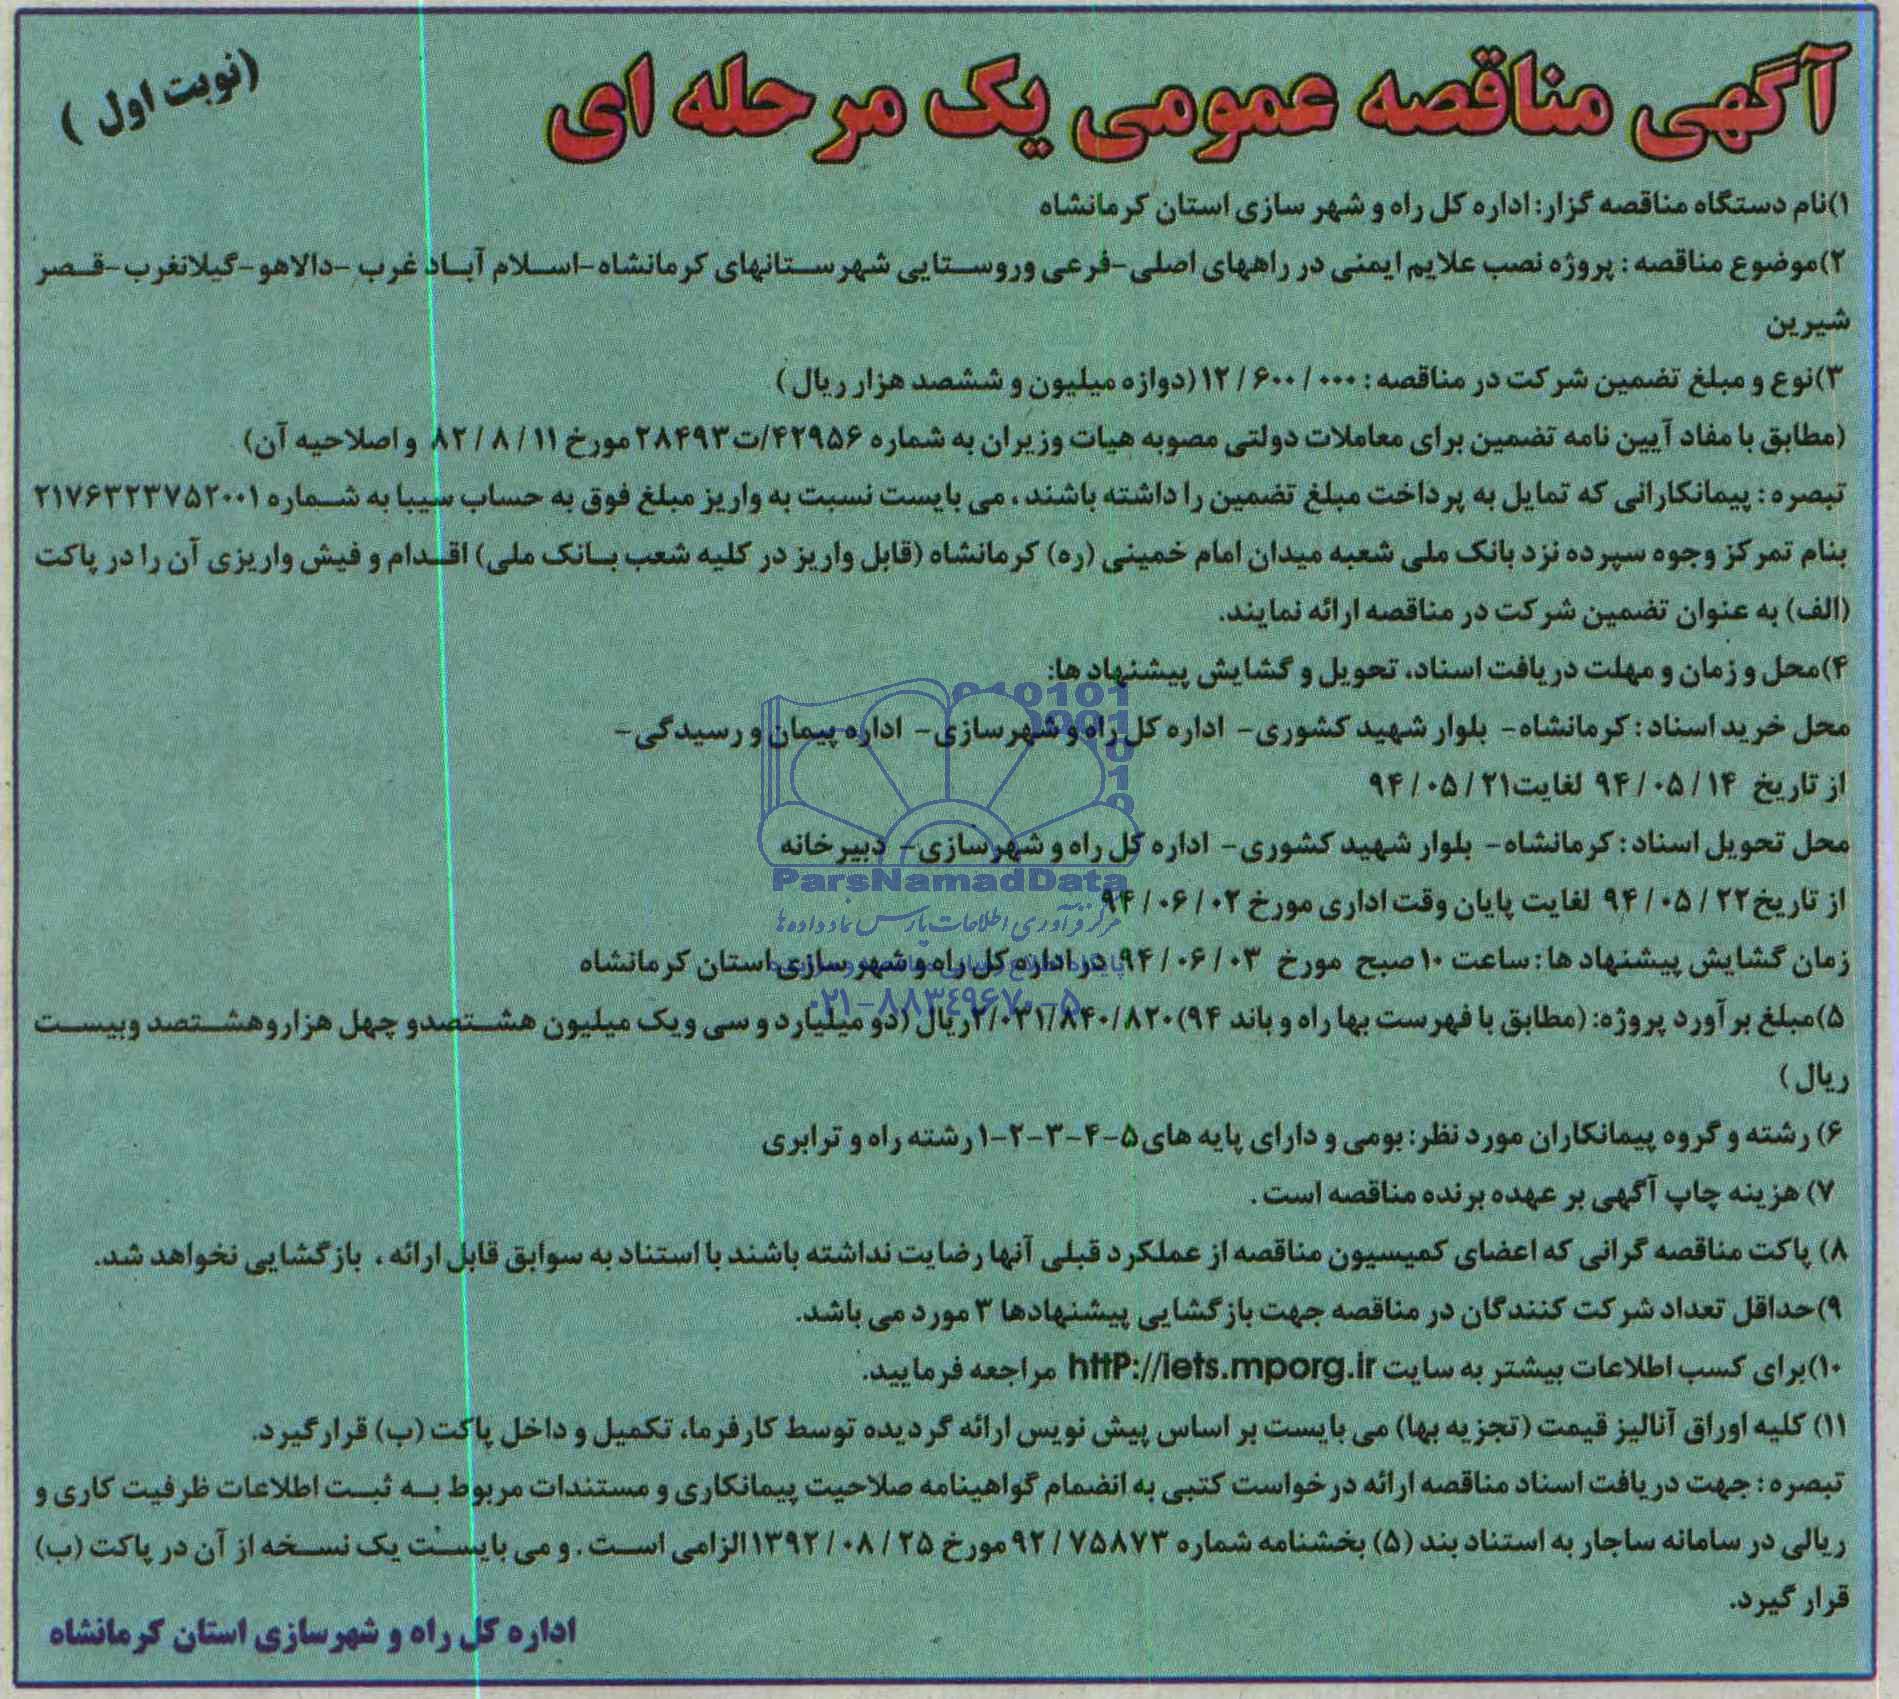 آگهی مناقصه عمومی یک مرحله ای
(نوبت اول)
۱)نام دستگاه مناقصه گزار: اداره کل راه و شهر سازی استان کرمانشاه
۲)موضوع مناقصه : پروژه نصب علایم ایمنی در راههای اصلی-فرعی وروستایی شهرستانهای کرمانشاه-اسلام آباد غرب -دالاهو-گیلانغرب-قصر
شیرین
۳)نوع و مبلغ تضمین شرکت در مناقصه : ۱۲/۶۰۰/۰۰۰ (دوازه میلیون و ششصد هزار ریال )
(مطابق با مفاد آیین نامه تضمین برای معاملات دولتی مصوبه هیات وزیران به شماره ۴۲۹۵۶/ت۲۸۴۹۳ مورخ ۸۲/۸/۱۱ و اصلاحیه آن)
تبصره : پیمانکارانی که تمایل به پرداخت مبلغ تضمین را داشته باشند ، می بایست نسبت به واریز مبلغ فوق به حساب سیبا به شماره ۲۱۷۶۳۲۳۷۵۲۰۰۱
بنام تمرکز وجوه سپرده نزد بانک ملی شعبه میدان امام خمینی (ره) کرمانشاه (قابل واریز در کلیه شعب بانک ملی) اقدام و فیش واریزی آن را در پاکت
(الف) به عنوان تضمین شرکت در مناقصه ارائه نمایند.
۴)محل و زمان و مهلت دریافت اسناد، تحویل و گشایش پیشنهاد ها:
محل خرید اسناد : کرمانشاه- بلوار شهید کشوری- اداره کل راه و شهرسازی- اداره پیمان و رسیدگی-
از تاریخ ۹۴/۰۵/۱۴ لغایت۹۴/۰۵/۲۱
محل تحویل اسناد : کرمانشاه- بلوار شهید کشوری- اداره کل راه و شهرسازی- دبیرخانه
از تاریخ۹۴/۰۵/۲۲ لغایت پایان وقت اداری مورخ ۹۴/۰۶/۰۲
زمان گشایش پیشنهاد ها : ساعت ۱۰ صبح مورخ ۹۴/۰۶/۰۳ در اداره کل راه و شهر سازی استان کرمانشاه
۵)مبلغ برآورد پروژه: (مطابق با فهرست بها راه و باند ۹۴)۲/۰۳۱/۸۴۰/۸۲۰ریال (دو میلیارد و سی ویک میلیون هشتصدو چهل هزاروهشتصد وبیست
ریال )
۶) رشته و گروه پیمانکاران مورد نظر: بومی و دارای پایه های۵-۴-۳-۲-۱ رشته راه و ترابری
۷) هزینه چاپ آگهی بر عهده برنده مناقصه است .
۸) پاکت مناقصه گرانی که اعضای کمیسیون مناقصه از عملکرد قبلی آنها رضایت نداشته باشند با استناد به سوابق قابل ارائه ، بازگشایی نخواهد شد.
۹)حداقل تعداد شرکت کنندگان در مناقصه جهت بازگشایی پیشنهادها ۳ مورد می باشد.
۱۰)برای کسب اطلاعات بیشتر به سایت httP://iets.mporg.ir مراجعه فرمایید.
۱۱) کلیه اوراق آنالیز قیمت (تجزیه بها) می بایست بر اساس پیش نویس ارائه گردیده توسط کارفرما، تکمیل و داخل پاکت (ب) قرار گیرد.
تبصره : جهت دریافت اسناد مناقصه ارائه درخواست کتبی به انضمام گواهینامه صلاحیت پیمانکاری و مستندات مربوط به ثبت اطلاعات ظرفیت کاری و
ریالی در سامانه ساجار به استناد بند (۵) بخشنامه شماره ۹۲/۷۵۸۷۳ مورخ ۱۳۹۲/۰۸/۲۵ الزامی است . و می بایست یک نسخه از آن در پاکت (ب)
قرار گیرد.
اداره کل راه و شهرسازی استان کرمانشاه
ParsNamadData
مرکز فرآوری اطلاعات پارس نماد داده ها
۰۲۱-۸۸۳۴۹۶۷۰-۵